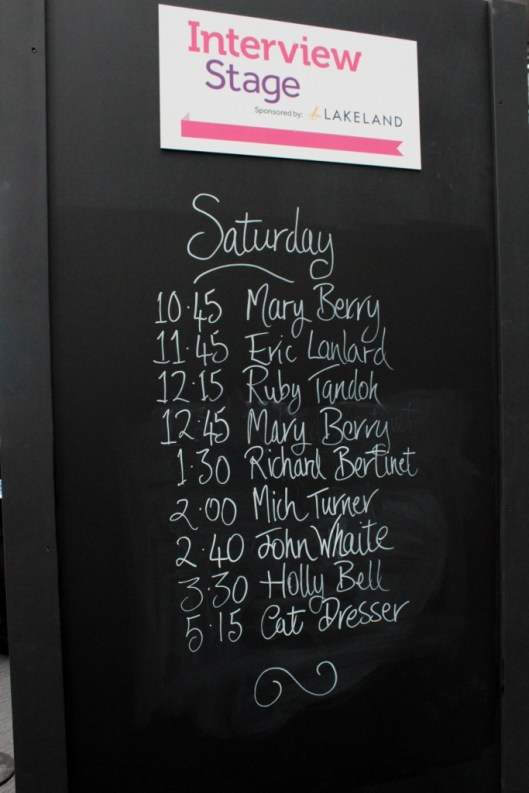 Interview
Stage
Sponsored by: LAKELAND
Saturday
10.45 Mary Berry
11.45 Eric Lanlard
12.15 Ruby Tandoh
12.45 Mary Berry
1.30 Richard Bertinet
2.00 Mich Turner
2.40 John Whaite
3.30 Holly Bell
5.15 Cat Dresser